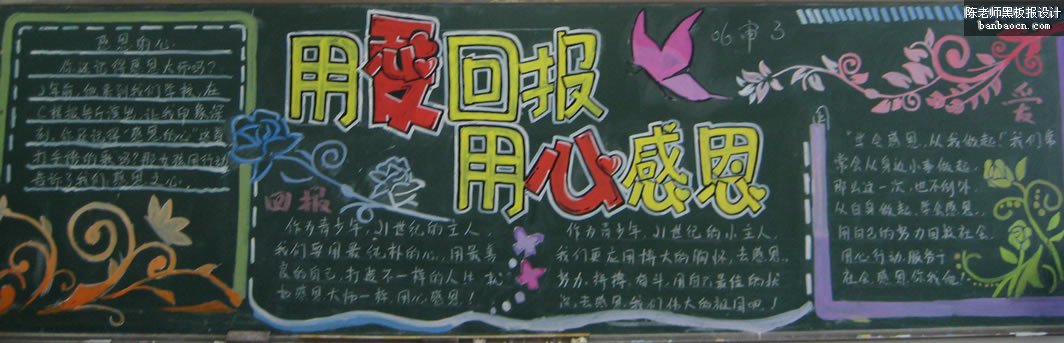 陈老师黑板报设计
banbaocn.com
感恩的心
你还记得感恩大师吗？
年前，他来到我们学校，在
到，你还记得“感恩的心”这首
手语的歌吗？那
告诉了我们，感恩之心。
用爱回报
用心感恩
06审3
回报
作为青少年，21世纪的主人，
我们要用最纯朴的心，用最善
良的自己，打造不一样的人生
也感恩大师一样，用心感恩！
作为青少年，21世纪的小主人，
我们更应用博大的胸怀，去感恩，
努力，拼搏，奋斗，用自己最佳的状
况，去感恩我们伟大的祖国吧！
爱
“学会感恩，从我做起！”我们
常会从身边小事做起，
那么这一次，也不例外，
从自身做起，学会感恩，
用自己的努力回报社会，
用心行动，服务于
社会，感恩你我他！